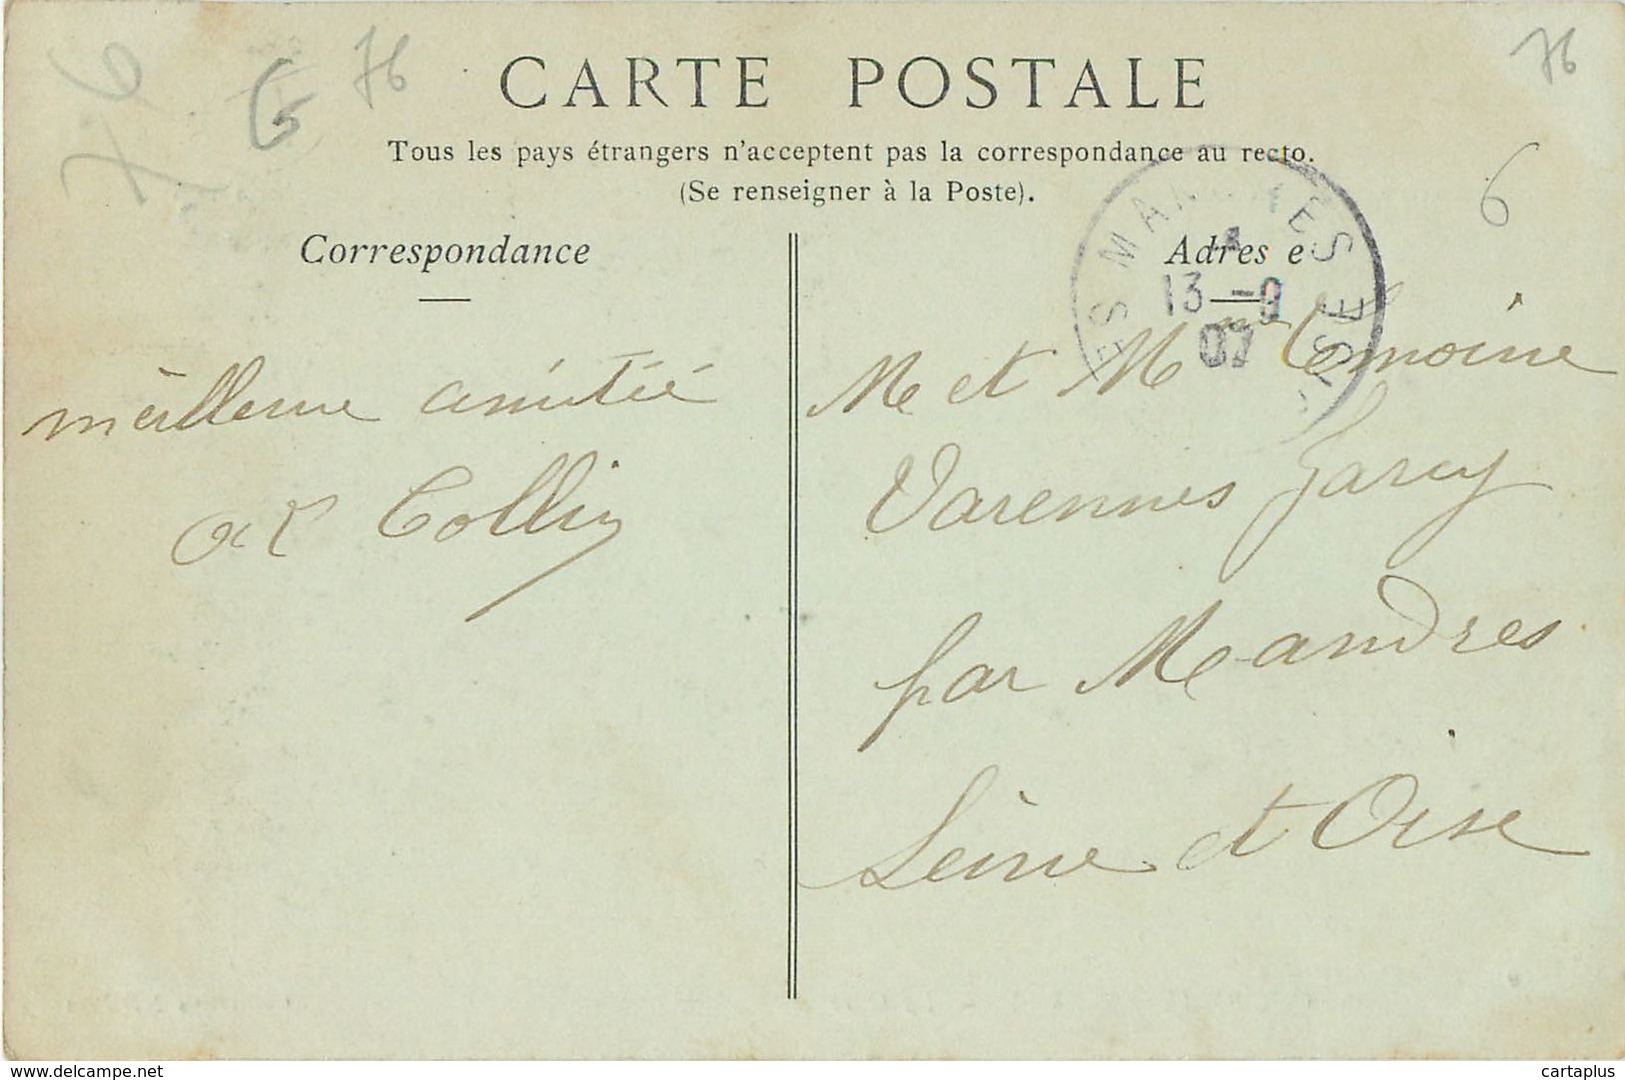 76
5
76
76
CARTE POSTALE
Tous les pays étrangers n'acceptent pas la correspondance au recto.
(Se renseigner à la Poste).
6
Correspondance
Adres e
13 -9
07
meilleure amitié
Collin
M et Mme Lemoine
Varennes Jarcy
par Mandres
Seine et Oise
www.delcampe.net
cartaplus